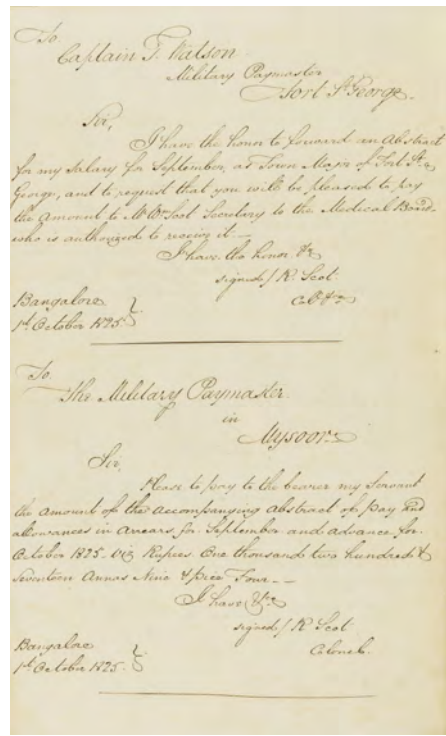 To
Captain T. Watson
Military Paymaster
Fort St. George.
Sir,
I have the honor to forward an Abstract
for my Salary for September, as Town Major of Fort St.
George, and to request that you will be pleased to pay
the Amount to Mr. Wm. Scot Secretary to the Medical Board
who is authorized to receive it—
I have the honor &c
signed / R. Scot.
Col. &c
Bangalore
1st October 1825.
To
The Military Paymaster
in
Mysoor
Sir,
Please to pay to the bearer my Servant
the amount of the accompanying Abstract of pay and
allowances in arrears for September and advance for
October 1825. viz Rupees One thousand two hundred &
Seventeen Annas Nine & pice Four.—
I have &c
signed / R Scot
Colonel.
Bangalore
1st October 1825.